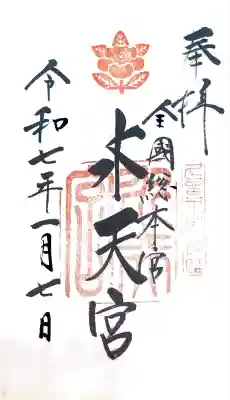 奉拝
全國総本宮
水天宮
令和七年一月七日